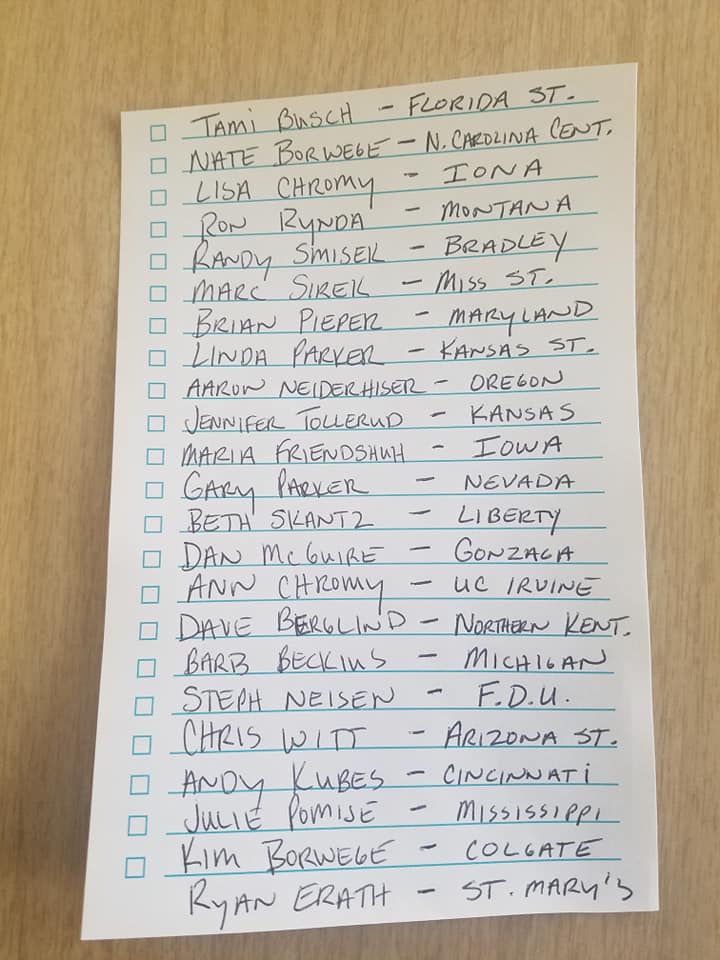 TAMI BUSCH - FLORIDA ST.
NATE BORWEGE - N. CAROLINA CENT.
LISA CHROMY - IONA
RON RYNDA - MONTANA
RANDY SMISEK - BRADLEY
MARC SIREK - MISS ST.
BRIAN PIEPER - MARYLAND
LINDA PARKER - KANSAS ST.
AARON NEIDERHISER - OREGON
JENNIFER TOLLERUD - KANSAS
MARIA FRIENDSHUH - IOWA
GARY PARKER - NEVADA
BETH SKANTZ - LIBERTY
DAN MCGUIRE - GONZAGA
ANN CHROMY - UC IRVINE
DAVE BERGLIND - NORTHERN KENT.
BARB BECKIUS - MICHIGAN
STEPH NEISEN - F.D.U.
CHRIS WITT - ARIZONA ST.
ANDY KUBES - CINCINNATI
JULIE POMIJE - MISSISSIPPI
KIM BORWEGE - COLGATE
RYAN ERATH - ST. MARY'S